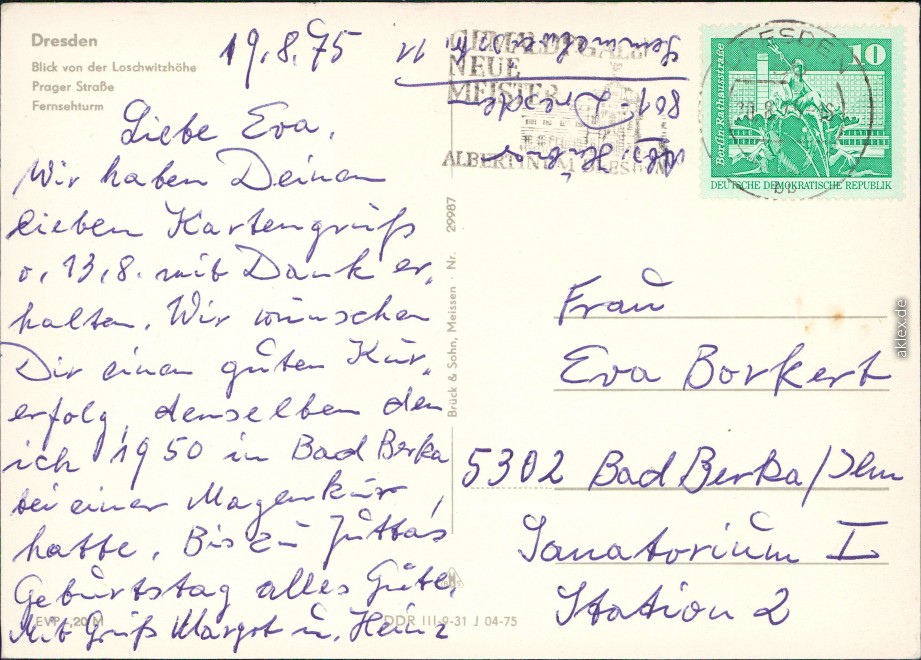 Dresden
Blick von der Loschwitzhöhe
Prager Straße
Fernsehturm
19.8.75
Liebe Eva,
Wir haben Deinen
lieben Kartengruß
v. 13.8. mit Dank er-
halten. Wir wünschen
Dir einen guten Kur-
erfolg, denselben den
ich 1950 in Bad Berka
bei einer Magenkur
hatte. Bis zu Jutta's
Geburtstag alles Gute,
Mit Gruß Margot u. Heinz
EVP -,20 M
DDR III-9-31 J 04-75
Brück & Sohn, Meissen · Nr. 29987
Abs.
801 - Dresden
11
GEMÄLDEGALERIE
NEUE
MEISTER
ALBERTINUM DRESDEN
DRESDEN
bb
10
Berlin-Rathausstraße
DEUTSCHE DEMOKRATISCHE REPUBLIK
Frau
Eva Borkert
5302 Bad Berka/Ilm
Sanatorium I
Station 2
aklex.de